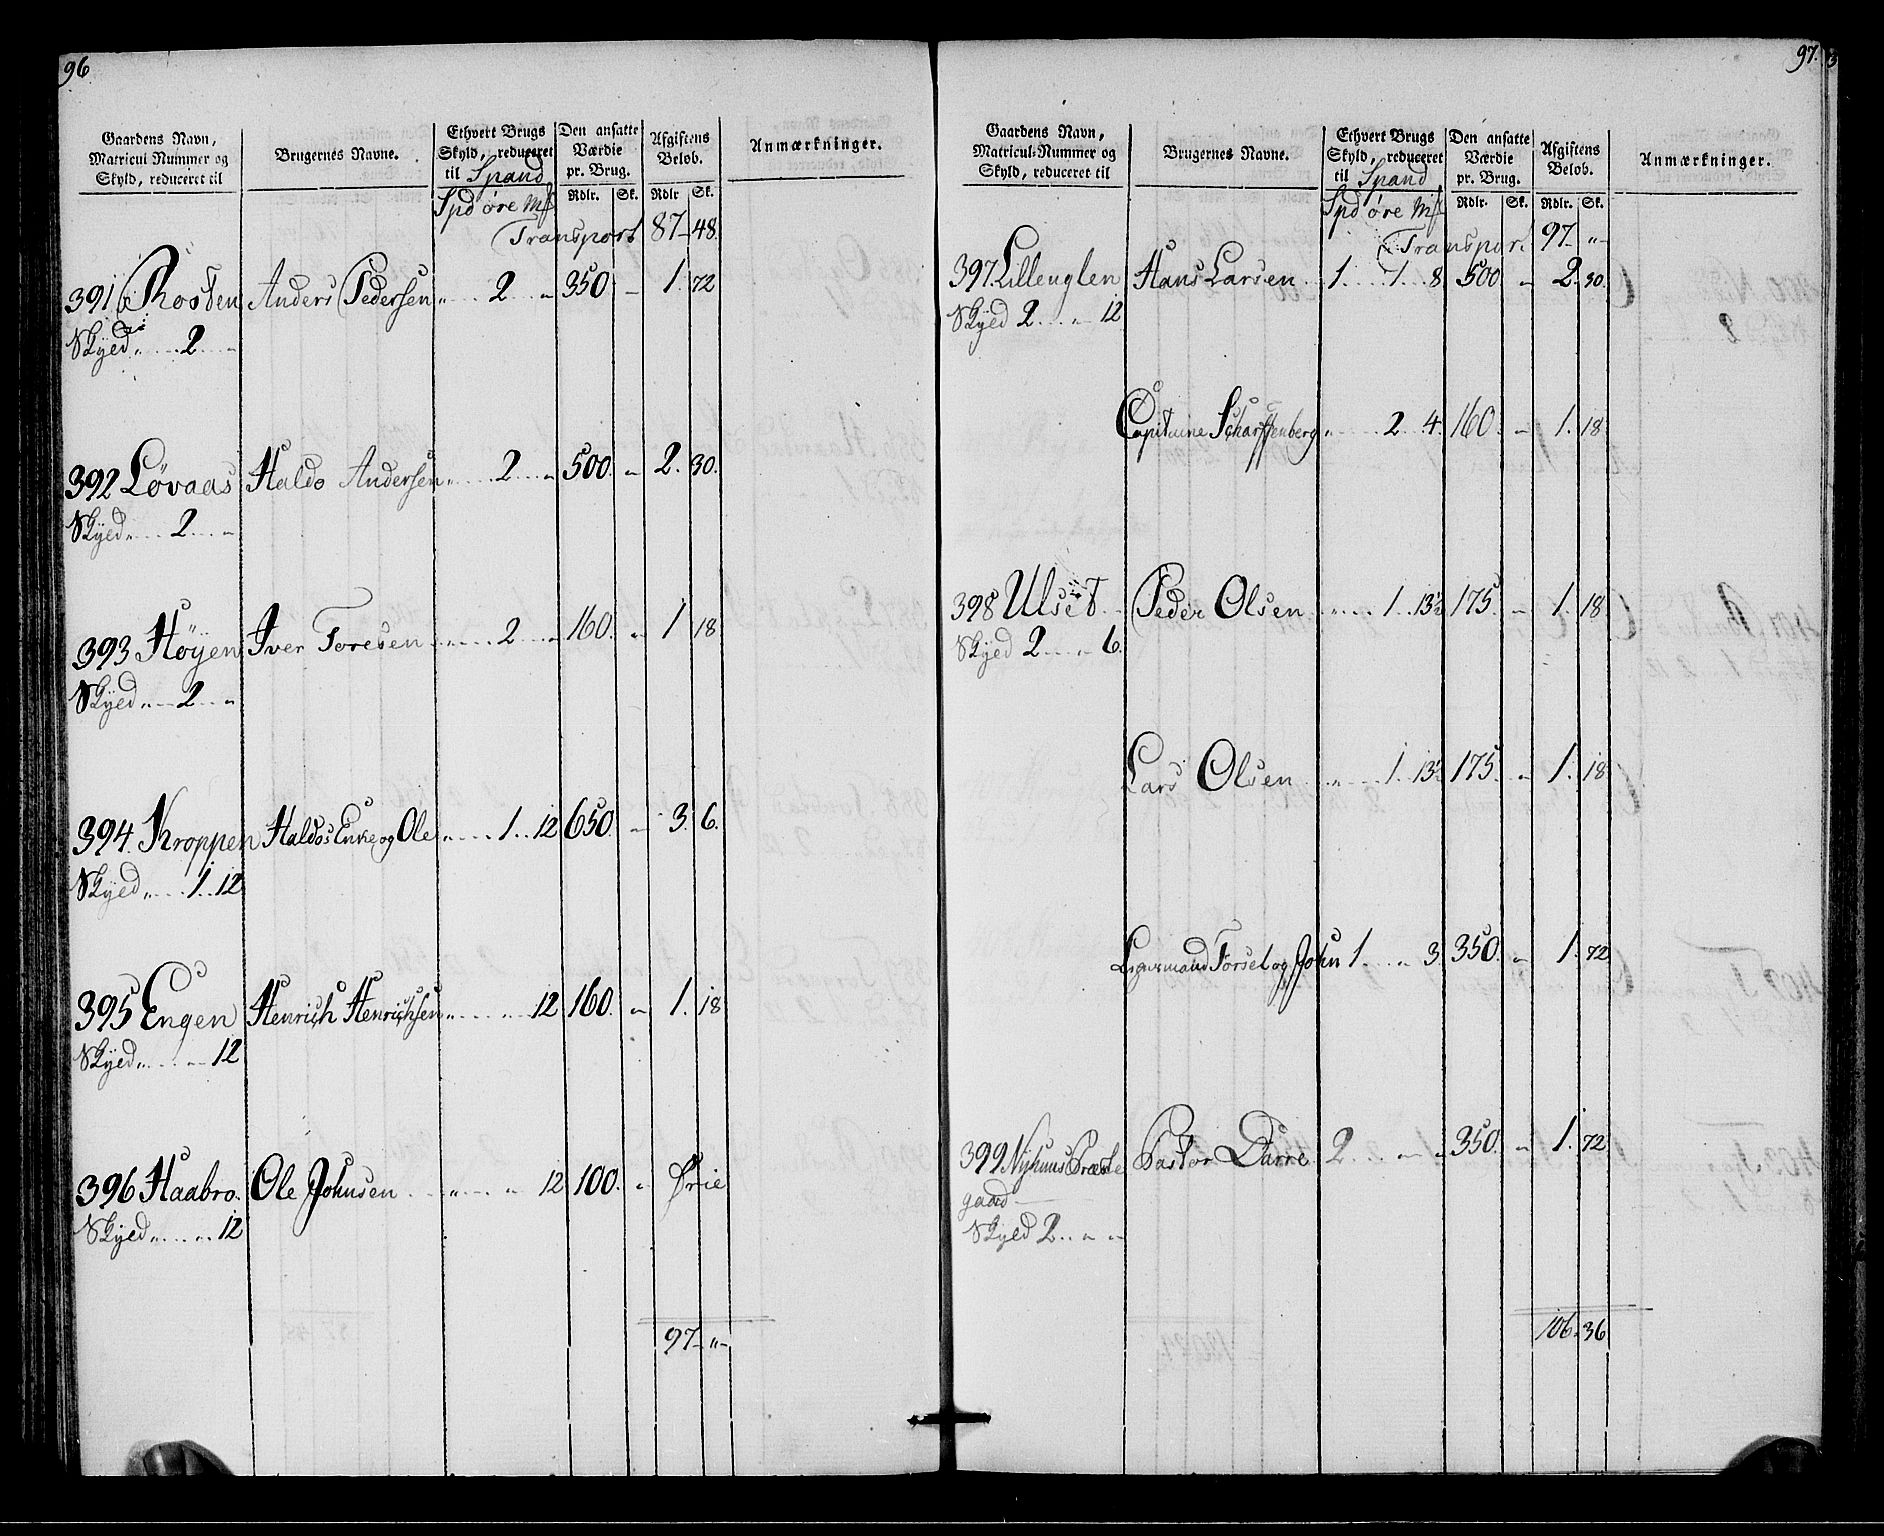 96
Gaardens Navn,
Matricul Nummer og
Skyld, reduceret til
Brugernes Navne.
Ethvert Brugs
Skyld, reduceret
til Spand
Spd øre Mk
Den ansatte
Værdie
pr. Brug.
Rdlr. Sk.
Afgiftens
Beløb.
Rdlr Sk.
Anmærkninger.
Transport 87 - 48.
391 Rosten Anders Pedersen „ 2 „ 350 - 1. 72
Skyed „ 2 „
392 Løvaas Haldo Andersen „ 2 „ 500. „ 2. 30.
Skyed „ 2 „
393 Høyen Iver Toresen „ 2 „ 160. „ 1 18
Skyed „ 2 „
394. Kroppen Haldos Enke og Ole „ 1. 12 650. „ 3. 6.
Skyed „ 1. 12
395 Engen Henrich Henrichsen „ „ 12 160. „ 1. 18
Skyed „ „ 12
396 Haabro. Ole Johnsen „ „ 12 100. „ Frie
Skyed „ „ 12
97 - „ -
97.
Gaardens Navn,
Matricul-Nummer og
Skyld, reduceret til
Brugernes Navne.
Ethvert Brugs
Skyld, reduceret
til Spand
Spd øre Mk
Den ansatte
Værdie
pr. Brug.
Rdlr. Sk.
Afgiftens
Beløb.
Rdlr. Sk.
Anmærkninger.
Transport 97 - „ -
397. Lillenglen Hans Larsen 1. 1. 8 500 „ 2. 30.
Skyed 2 „ 12
Capitaine Scharffenberg „ 2 4. 160. „ 1. 18
398 Ulset Peder Olsen „ 1. 13½ 175. „ 1. 18
Skyed 2 „ 6.
Lars Olsen „ 1. 13½ 175. „ 1. 18
Forsel og John 1. „ 3. 350. „ 1. 72
399 Nyhuus Præste Pastor Darre 2 „ „ 350. „ 1. 72
gaard
Skyld 2 „ „
106. 36